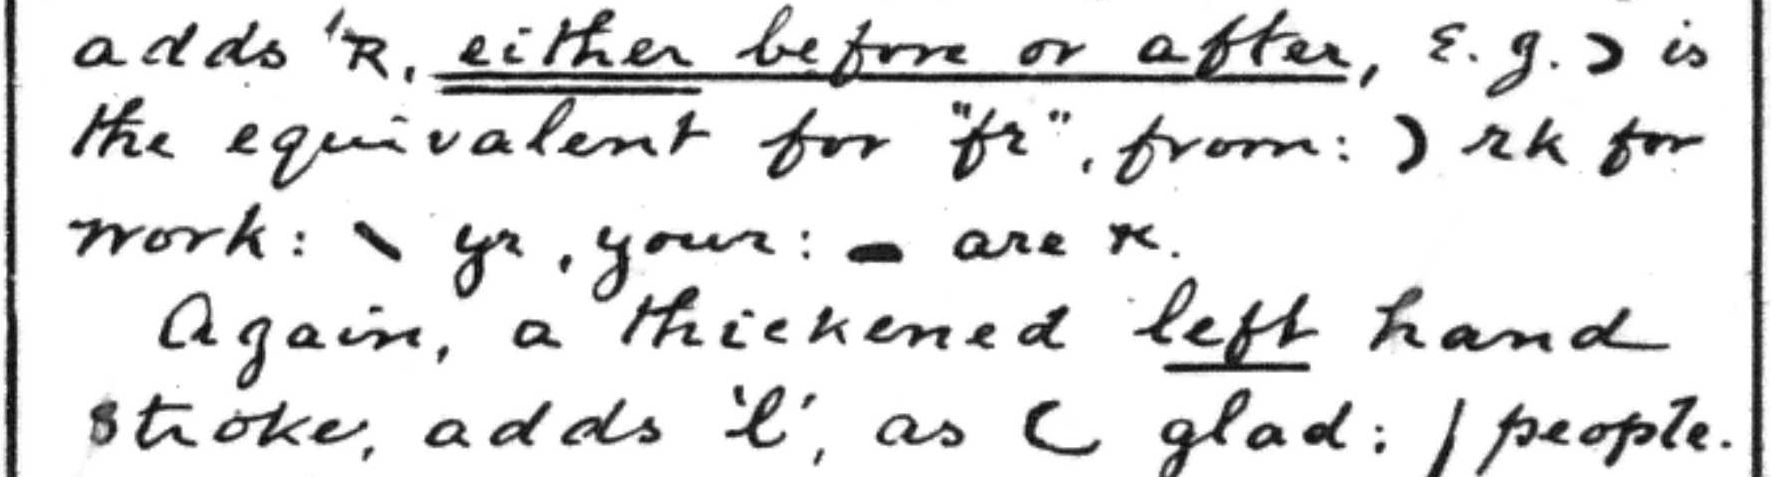 adds 'R, either before or after, E.g. ) is
the equivalent for "fr", from: ) rk for
work: \ yr, your: - are r.
Again, a thickened left hand
stroke, adds 'l', as ( glad: / people.